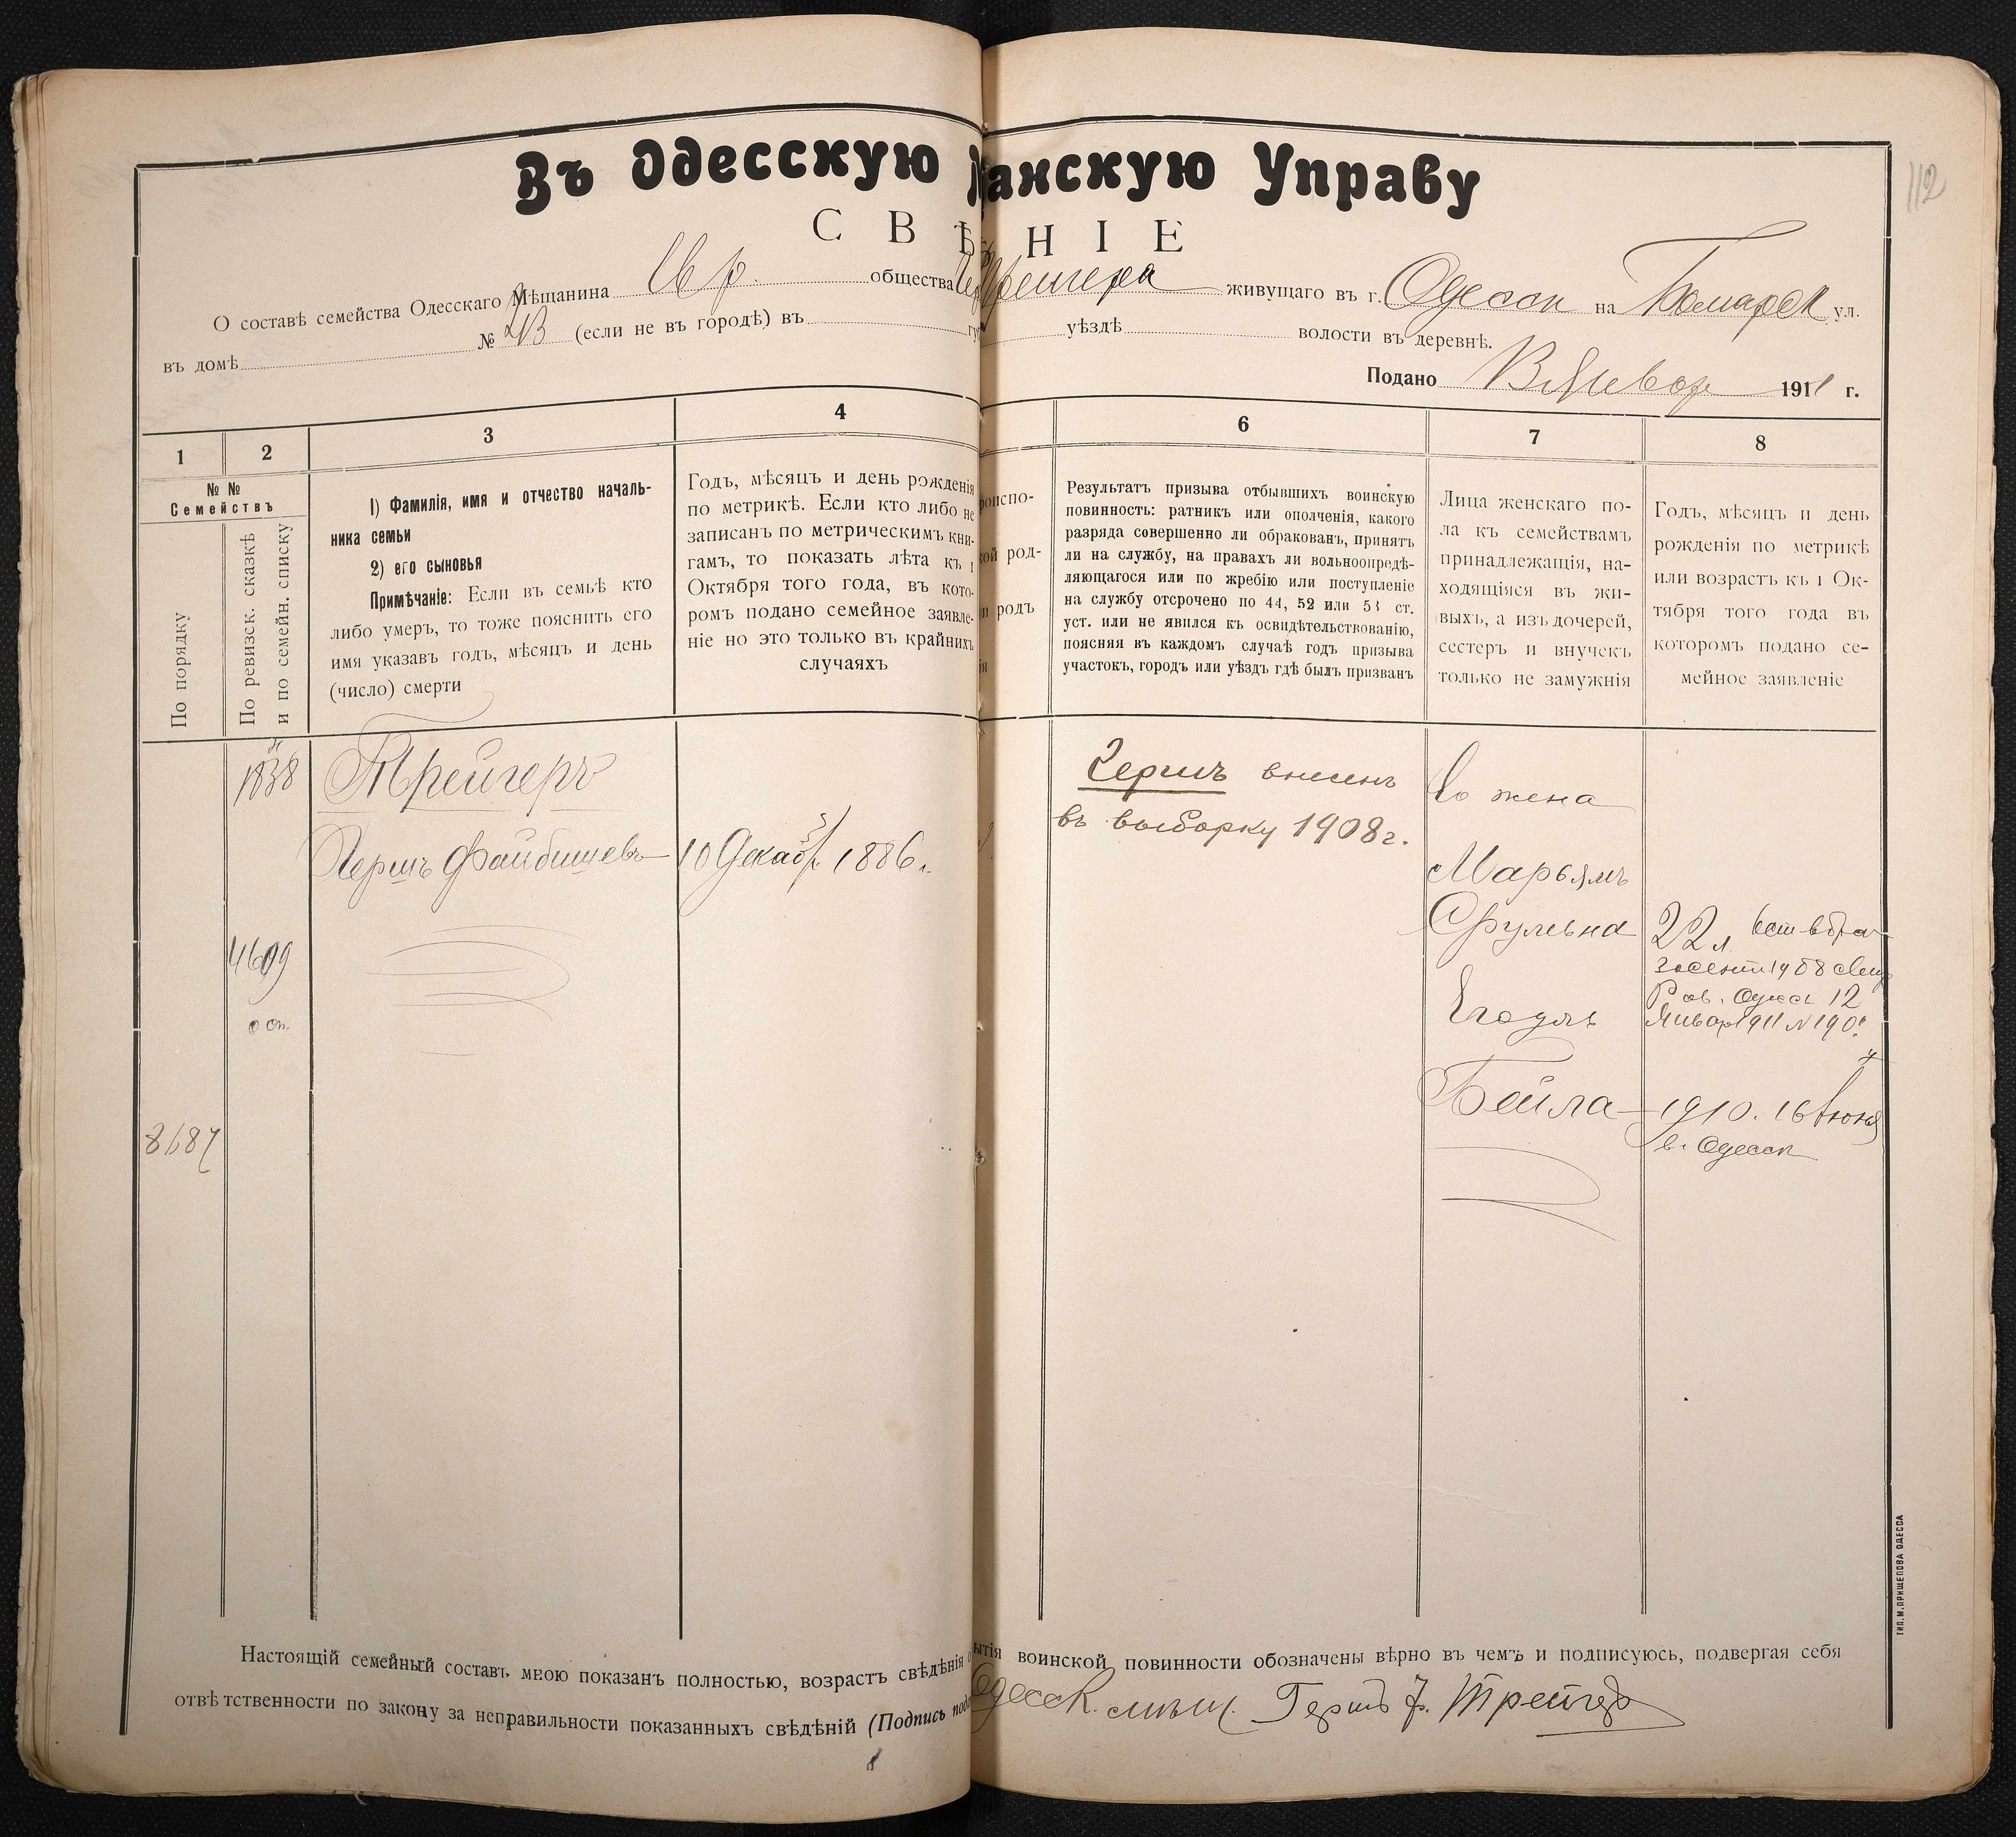 112
Въ Одесскую анскую Управу
С В Ѣ Н І Е
О составѣ семейства Одесскаго Мѣщанина Евр. общества Трейгера живущаго въ г. Одессѣ на ул.
въ домѣ № (если не въ городѣ) въ гу уѣздѣ волости въ деревнѣ.
Подано Январ 1911 г.
1 2 3 4 6 7 8
№ №
Семействъ
По порядку
По ревизск. сказкѣ
и по семейн. списку
1) Фамилія, имя и отчество началь-
ника семьи
2) его сыновья
Примѣчаніе: Если въ семьѣ кто
либо умеръ, то тоже пояснить его
имя указавъ годъ, мѣсяцъ и день
(число) смерти
Годъ, мѣсяцъ и день рожденія
по метрикѣ. Если кто либо не
записанъ по метрическимъ кни-
гамъ, то показать лѣта къ 1
Октября того года, въ кото-
ромъ подано семейное заявле-
ніе но это только въ крайнихъ
случаяхъ
роиспо-
кой род-
и родъ
ія
Результатъ призыва отбывшихъ воинскую
повинность: ратникъ или ополченія, какого
разряда совершенно ли обракованъ, принятъ
ли на службу, на правахъ ли вольноопредѣ-
ляющагося или по жребію или поступленіе
на службу отсрочено по 44, 52 или 53 ст.
уст. или не явился къ освидѣтельствованію,
поясняя въ каждомъ случаѣ годъ призыва
участокъ, городъ или уѣздъ гдѣ былъ призванъ
Лица женскаго по-
ла къ семействамъ
принадлежащія, на-
ходящіяся въ жи-
выхъ, а изъ дочерей,
сестеръ и внучекъ
только не замужнія
Годъ, мѣсяцъ и день
рожденія по метрикѣ
или возрастъ къ 1 Ок-
тября того года въ
которомъ подано се-
мейное заявленіе
1838
Трейгеръ
Гершъ Файбишевъ 10 Декабр 1886 г.
4609
о сп.
8687
Гершъ внесенъ
въ выборку 1908 г.
Его жена
Марьямъ
Срулевна
22 л.
Рав. Одесс 12
Январ 1911 №190
Его дочь
Бейла 1910. 16 Іюня
в. Одессѣ
Настоящій семейный составъ мною показанъ полностью, возрастъ свѣдѣнія о ытія воинской повинности обозначены вѣрно въ чемъ и подписуюсь, подвергая себя
отвѣтственности по закону за неправильности показанныхъ свѣдѣній (Подпись под Одесск. мѣщ. Гершъ Ф. Трейгеръ
8
ТИП. М. ПРИЩЕПОВА ОДЕССА